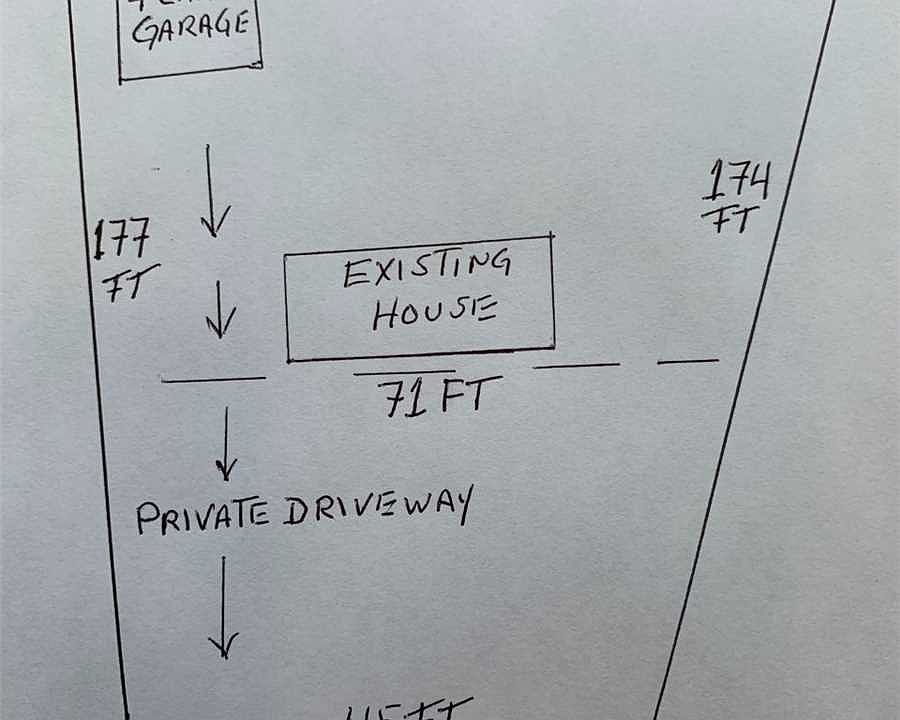 GARAGE
174
FT
177
FT
EXISTING
HOUSE
71 FT
PRIVATE DRIVEWAY